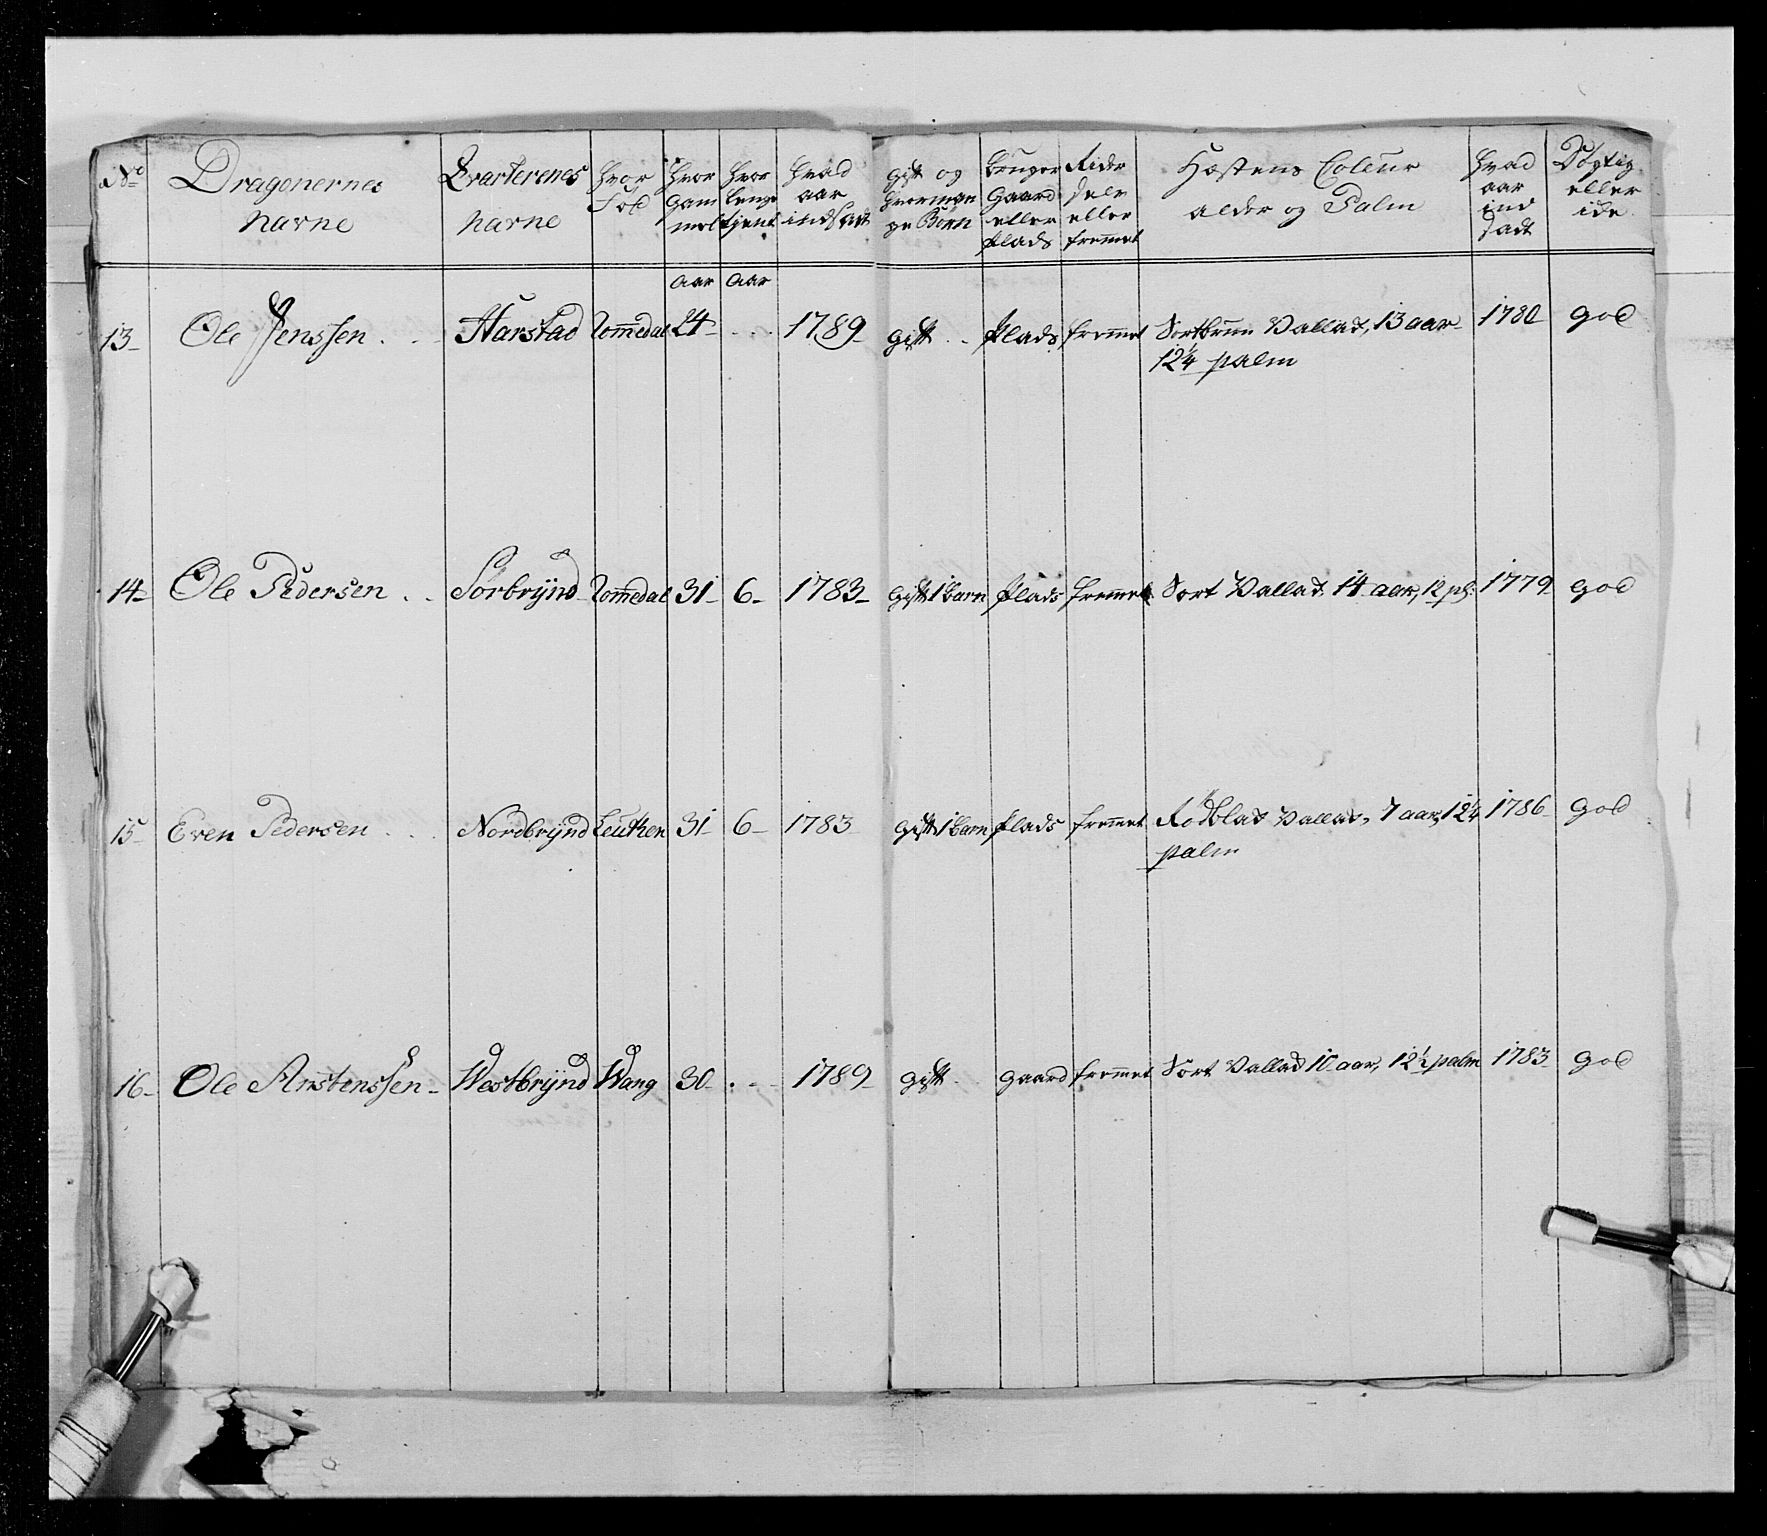 No Dragonernes Navne Qvarterenes Navne hvor Fød hvor gam mel hvor lenge tjent hvad aar indsatt gift og hvorman ge Børn bruger Gaard eller Plads Rider selv eller fremmet Hæstens Coleur alder og Palm hvad aar ind sadt Døgtig eller ide
aar aar
13 Ole Jenssen . . Harstad Romedal 24 . . . 1789 gift . . Plads fremmet Sortbrun Vallad, 13 aar 1780 god
12¼ palm
14 Ole Pedersen . . Sørbrÿnd Romedal 31 6 1783 gift 1 barn Plads fremmet Sort Vallad 14 aar, 12 pl: 1779 god
15 Even Pedersen . . Nordbrÿnd Leuthen 31 6 1783 gift 1 barn Plads fremmet Rødblad Vallad, 7 aar, 12¼ 1786 god
palm
16 Ole Arnstenssen Westbrÿnd Wang 30 . . . 1789 gift . gaard fremmet Sort Vallad 10 aar, 12½ palm 1783 god